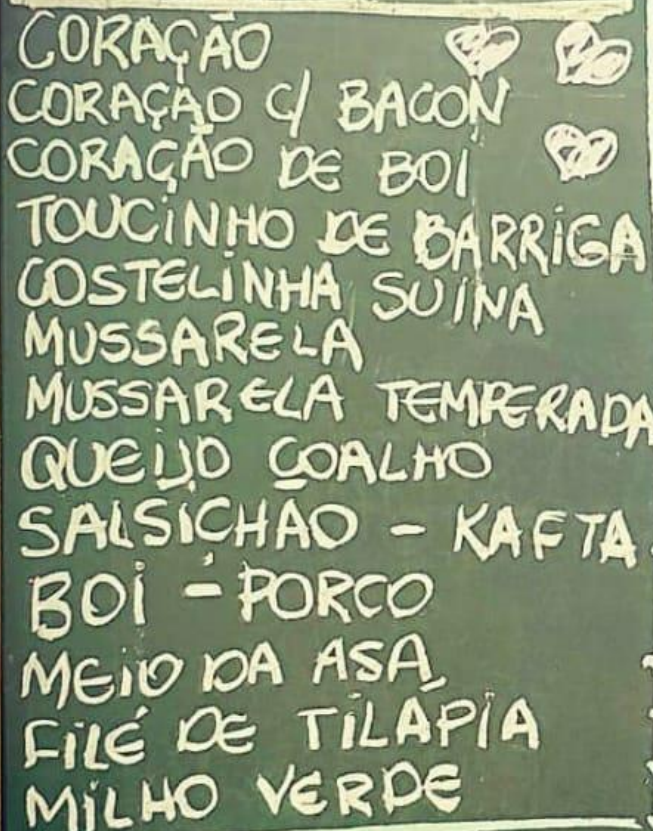 CORAÇÃO
CORAÇÃO C/ BACON
CORAÇÃO DE BOI
TOUCINHO DE BARRIGA
COSTELINHA SUINA
MUSSARELA
MUSSARELA TEMPERADA
QUEIJO COALHO
SALSICHÃO - KAFTA
BOI - PORCO
MEIO DA ASA
FILÉ DE TILÁPIA
MILHO VERDE